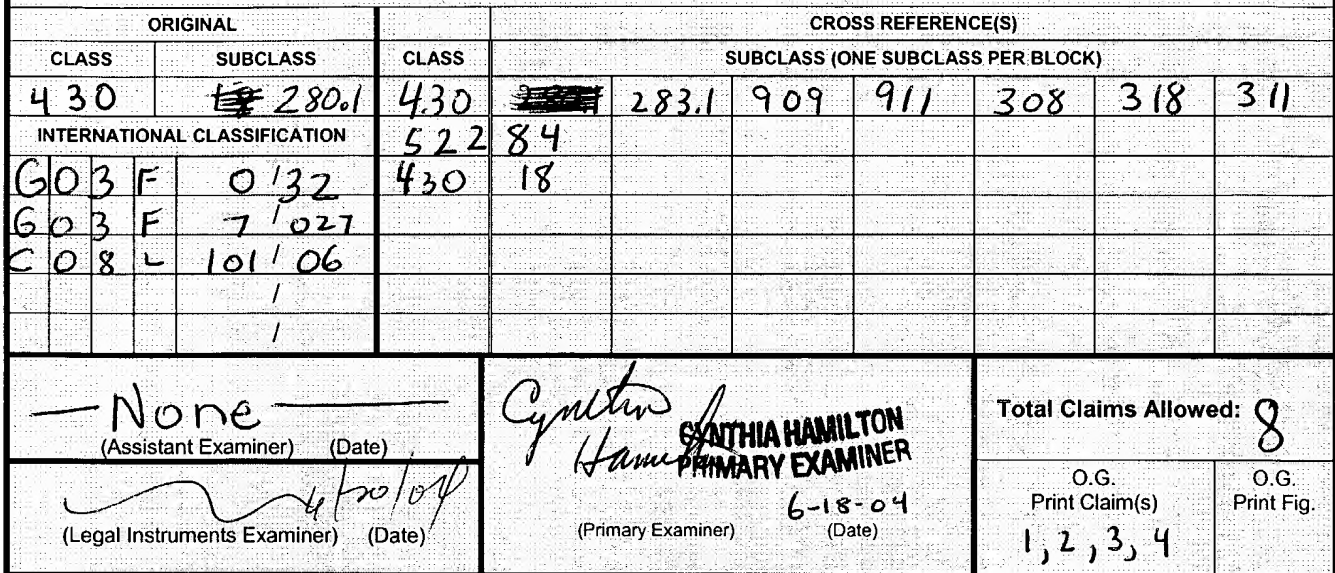 ORIGINAL CROSS REFERENCE(S)
CLASS SUBCLASS CLASS SUBCLASS (ONE SUBCLASS PER BLOCK)
430 280.1 430 283.1 909 911 308 318 311
INTERNATIONAL CLASSIFICATION 522 84
G03F 0/32 430 18
G03F 7/027
C08L 101/06
/
/
—None—
(Assistant Examiner) (Date)
(Legal Instruments Examiner) (Date)
Cynthia
Hamilton
CYNTHIA HAMILTON
PRIMARY EXAMINER
6-18-04
(Primary Examiner) (Date)
Total Claims Allowed: 8
O.G.
Print Claim(s)
1, 2, 3, 4
O.G.
Print Fig.